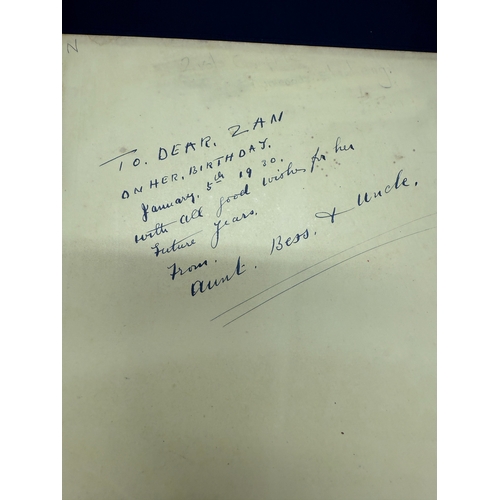 N
TO. DEAR. ZAN
ON HER. BIRTHDAY.
January. 5th 1930.
with all good wishes for her
Future Years.
From.
Aunt. Bess. & Uncle.